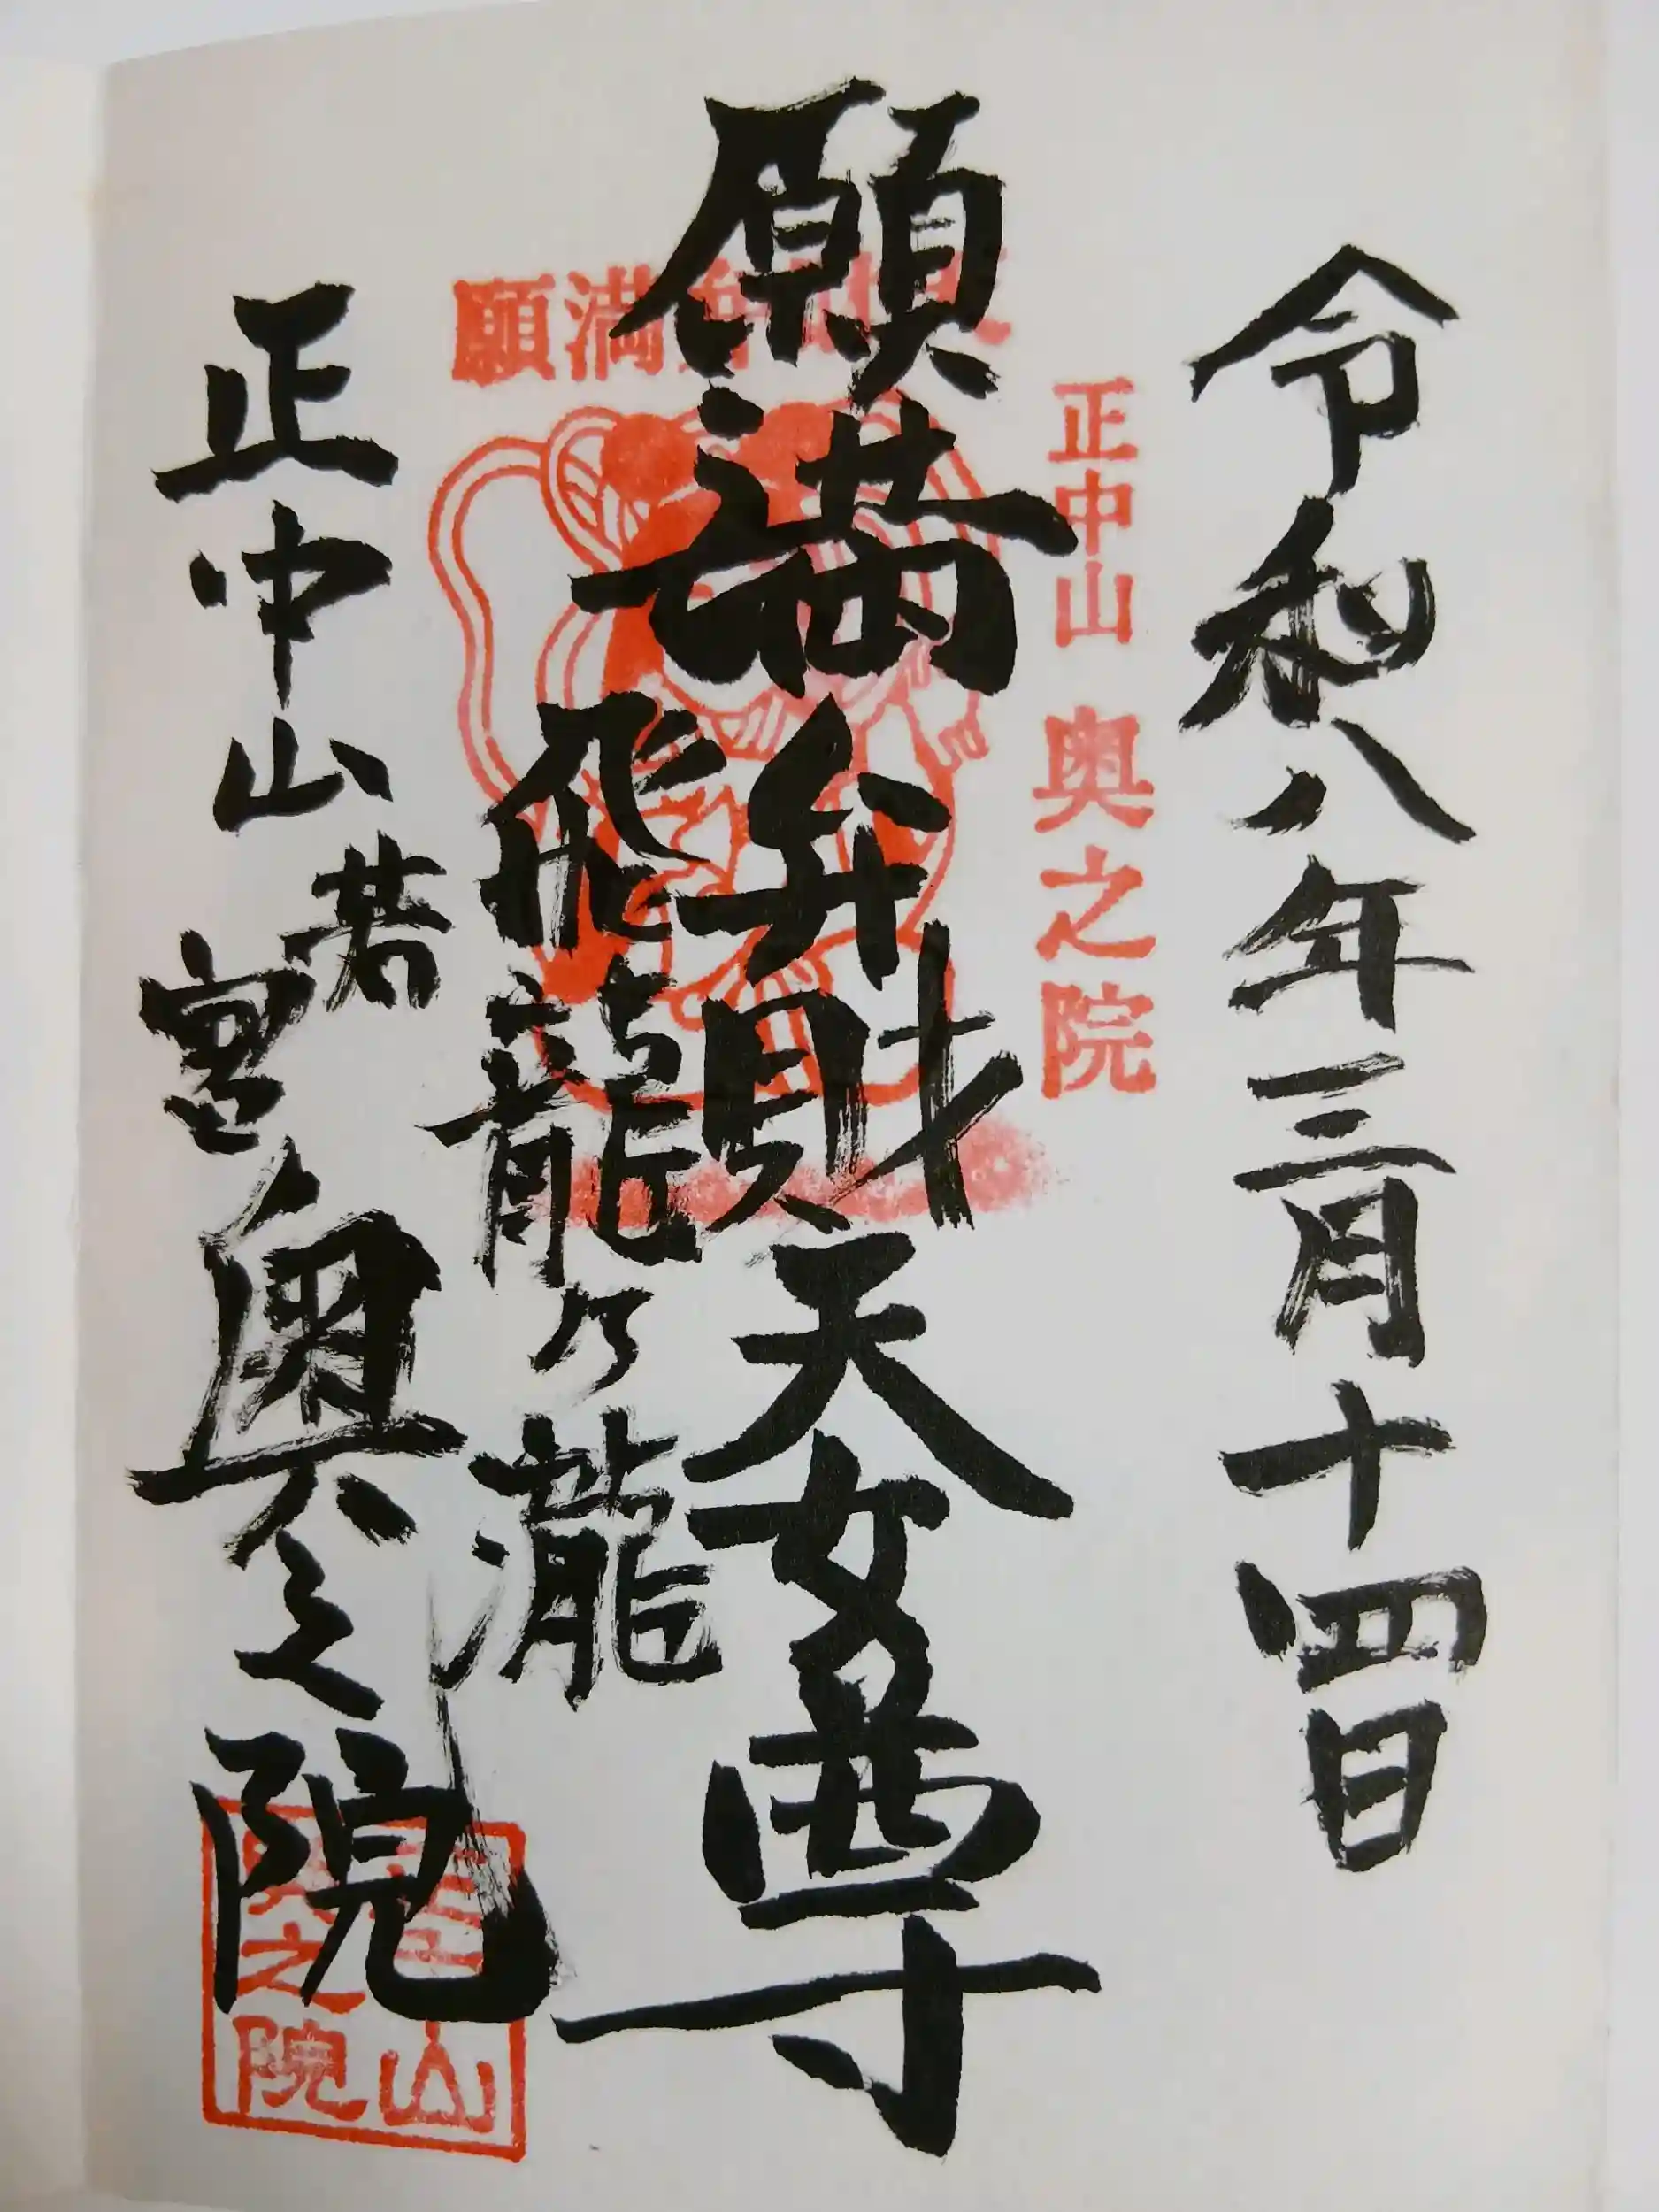 令和八年三月十四日
正中山 奥之院
願満弁財天女尊
飛龍乃瀧
願満
正中山若宮奥之院
山
之院